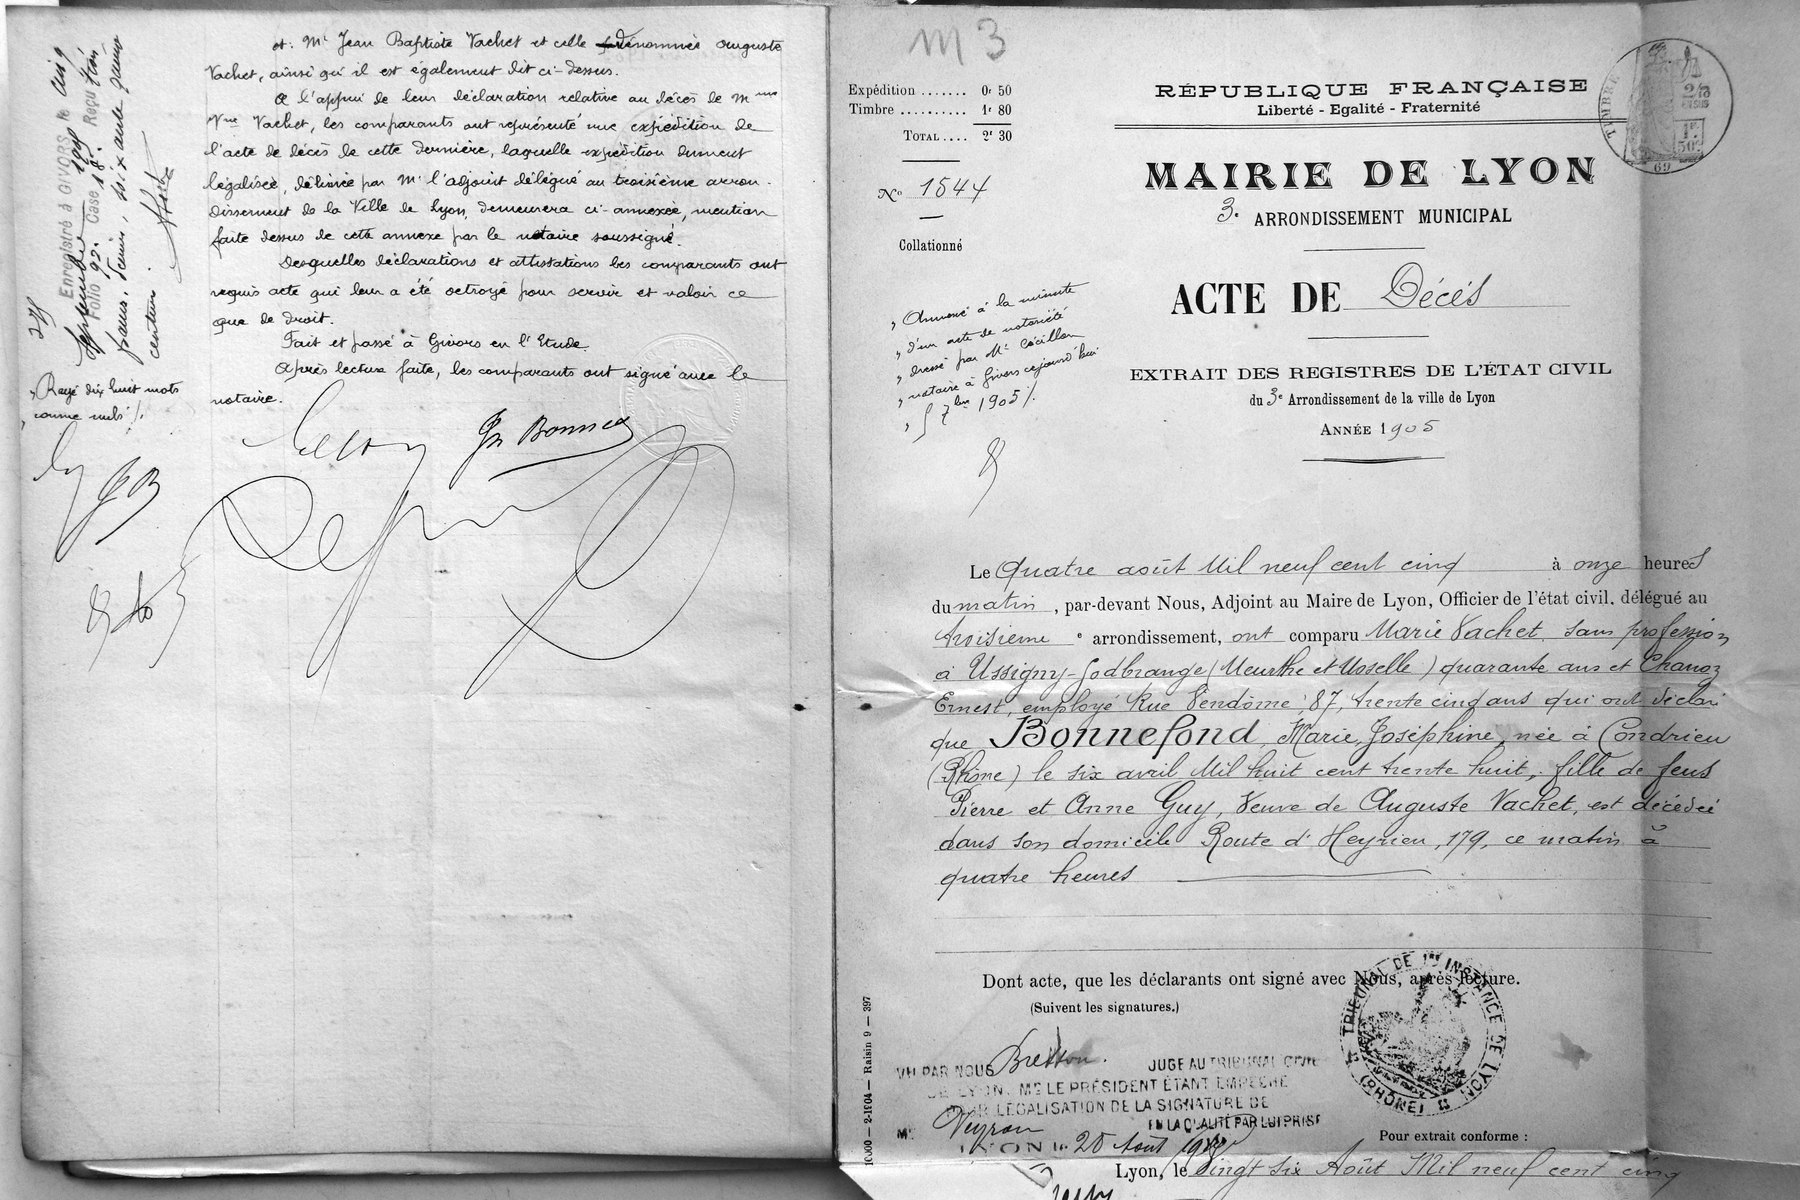 et Mr Jean Baptiste Vachet et celle dénommée Auguste
Vachet, ainsi qu'il est également dit ci-dessus.
A l'appui de leur déclaration relative au décès de Mme
Vve Vachet, les comparants ont représenté une expédition de
l'acte de décès de cette dernière, laquelle expédition dument
légalisée, délivrée par Mr l'adjoint délégué au troisième arron-
dissement de la Ville de Lyon, demeurera ci-annexée, mention
faite dessus de cette annexe par le notaire soussigné.
Desquelles déclarations et attestations les comparants ont
requis acte qui leur a été octroyé pour servir et valoir ce
que de droit.
Fait et passé à Givors en l'Etude.
Après lecture faite, les comparants ont signé avec le
notaire.
Enregistré à GIVORS le cinq
Septembre 1905
Folio 92 Case 18 Reçu trois
francs, décimes, soixante quinze
centimes.
Rayé dix huit mots
comme nuls ./.
JB
M 3
Expédition ....... 0f 50
Timbre .......... 1f 80
TOTAL .... 2f 30
No 1544
Collationné
Annexé à la minute
d'un acte de notoriété
dressé par Mr Cécillon
notaire à Givors cejourd'hui
5 7bre 1905 ./.
RÉPUBLIQUE FRANÇAISE
Liberté - Egalité - Fraternité
TIMBRE
69
MAIRIE DE LYON
3e ARRONDISSEMENT MUNICIPAL
ACTE DE Décès
EXTRAIT DES REGISTRES DE L'ÉTAT CIVIL
du 3e Arrondissement de la ville de Lyon
ANNÉE 1905
Le Quatre août Mil neuf cent cinq à onze heures
du matin, par-devant Nous, Adjoint au Maire de Lyon, Officier de l'état civil, délégué au
troisième e arrondissement, ont comparu Marie Vachet, sans profession
à Ussigny-Godbrange (Meurthe et Moselle) quarante ans et Chanoz
Ernest, employé Rue Vendôme, 87, trente cinq ans qui ont déclaré
que Bonnefond Marie, Joséphine, née à Condrieu
(Rhône) le six avril Mil huit cent trente huit, fille de feus
Pierre et Anne Guy, Veuve de Auguste Vachet, est décédée
dans son domicile Route d'Heyrieu, 179, ce matin à
quatre heures
Dont acte, que les déclarants ont signé avec Nous, après lecture.
(Suivent les signatures.)
TRIBUNAL DE 1re INSTANCE DE LYON
(RHÔNE)
VU PAR NOUS Bretton. JUGE AU TRIBUNAL CIVIL
DE LYON, MR LE PRÉSIDENT ÉTANT EMPÊCHÉ
POUR LÉGALISATION DE LA SIGNATURE DE
MR Veyron EN LA QUALITÉ PAR LUI PRISE
LYON le 28 Août 1905
10000 — 2-1904 — Raisin 9 — 397
Pour extrait conforme :
Lyon, le Vingt six Août Mil neuf cent cinq